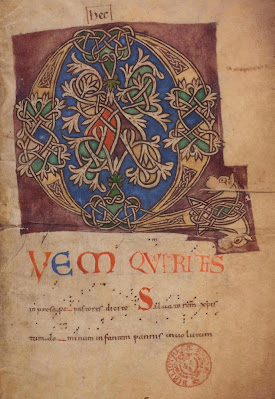 hec
Q
VEM QVERITIS
in presepe pastores dicite Saluatorem xpis
tum dominum infantem pannis inuolutum